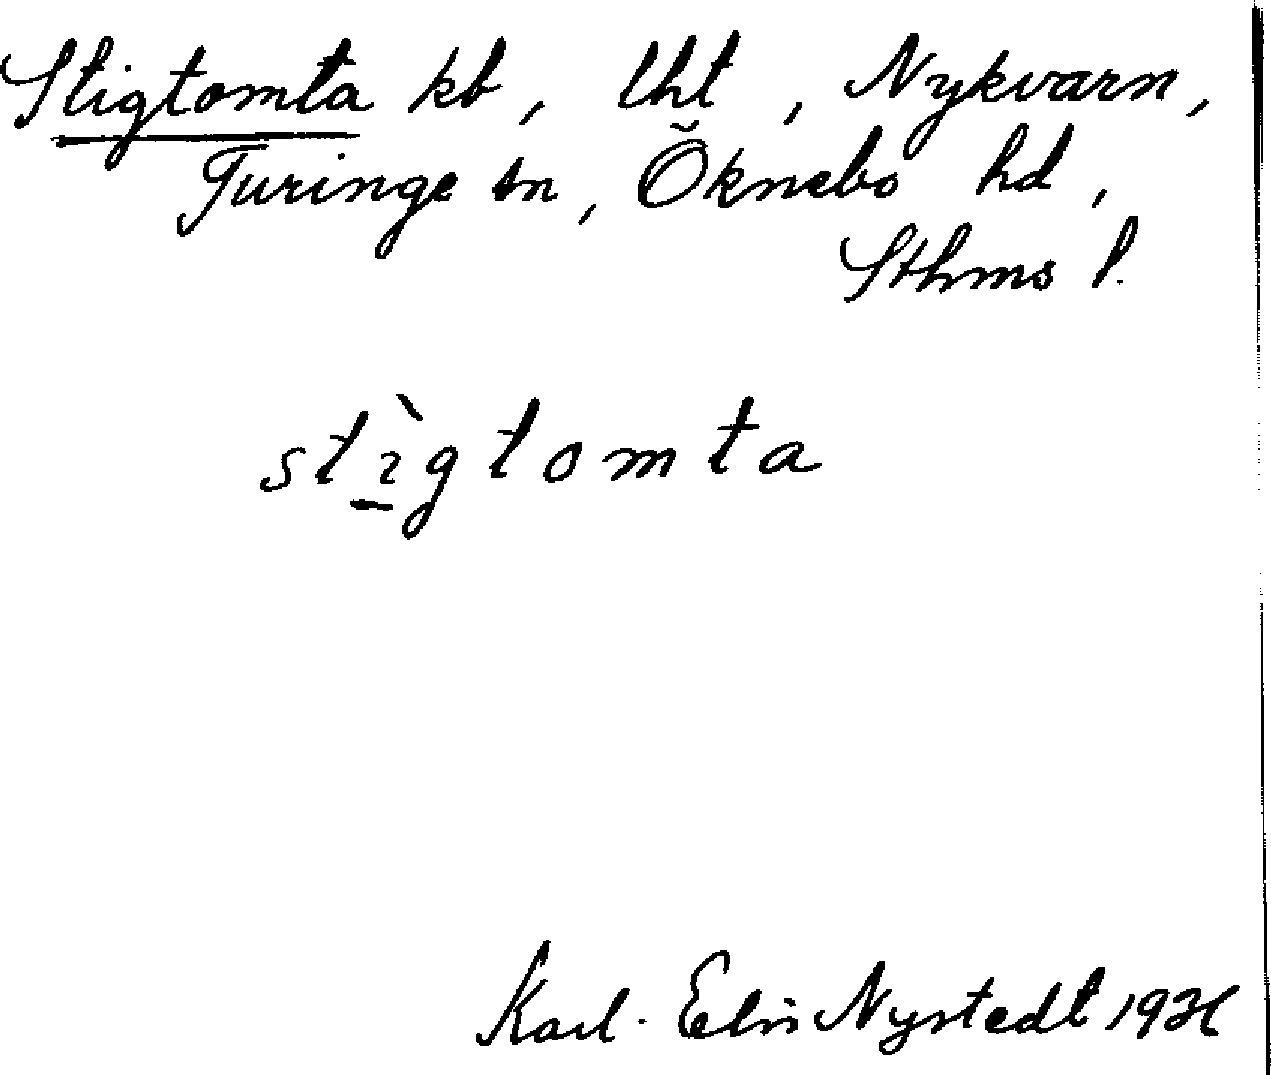 Stigtomta kb, lht, Nykvarn,
Turinge sn, Öknebo hd,
Sthms l.
stìgtomta
Karl-Elis Nystedt